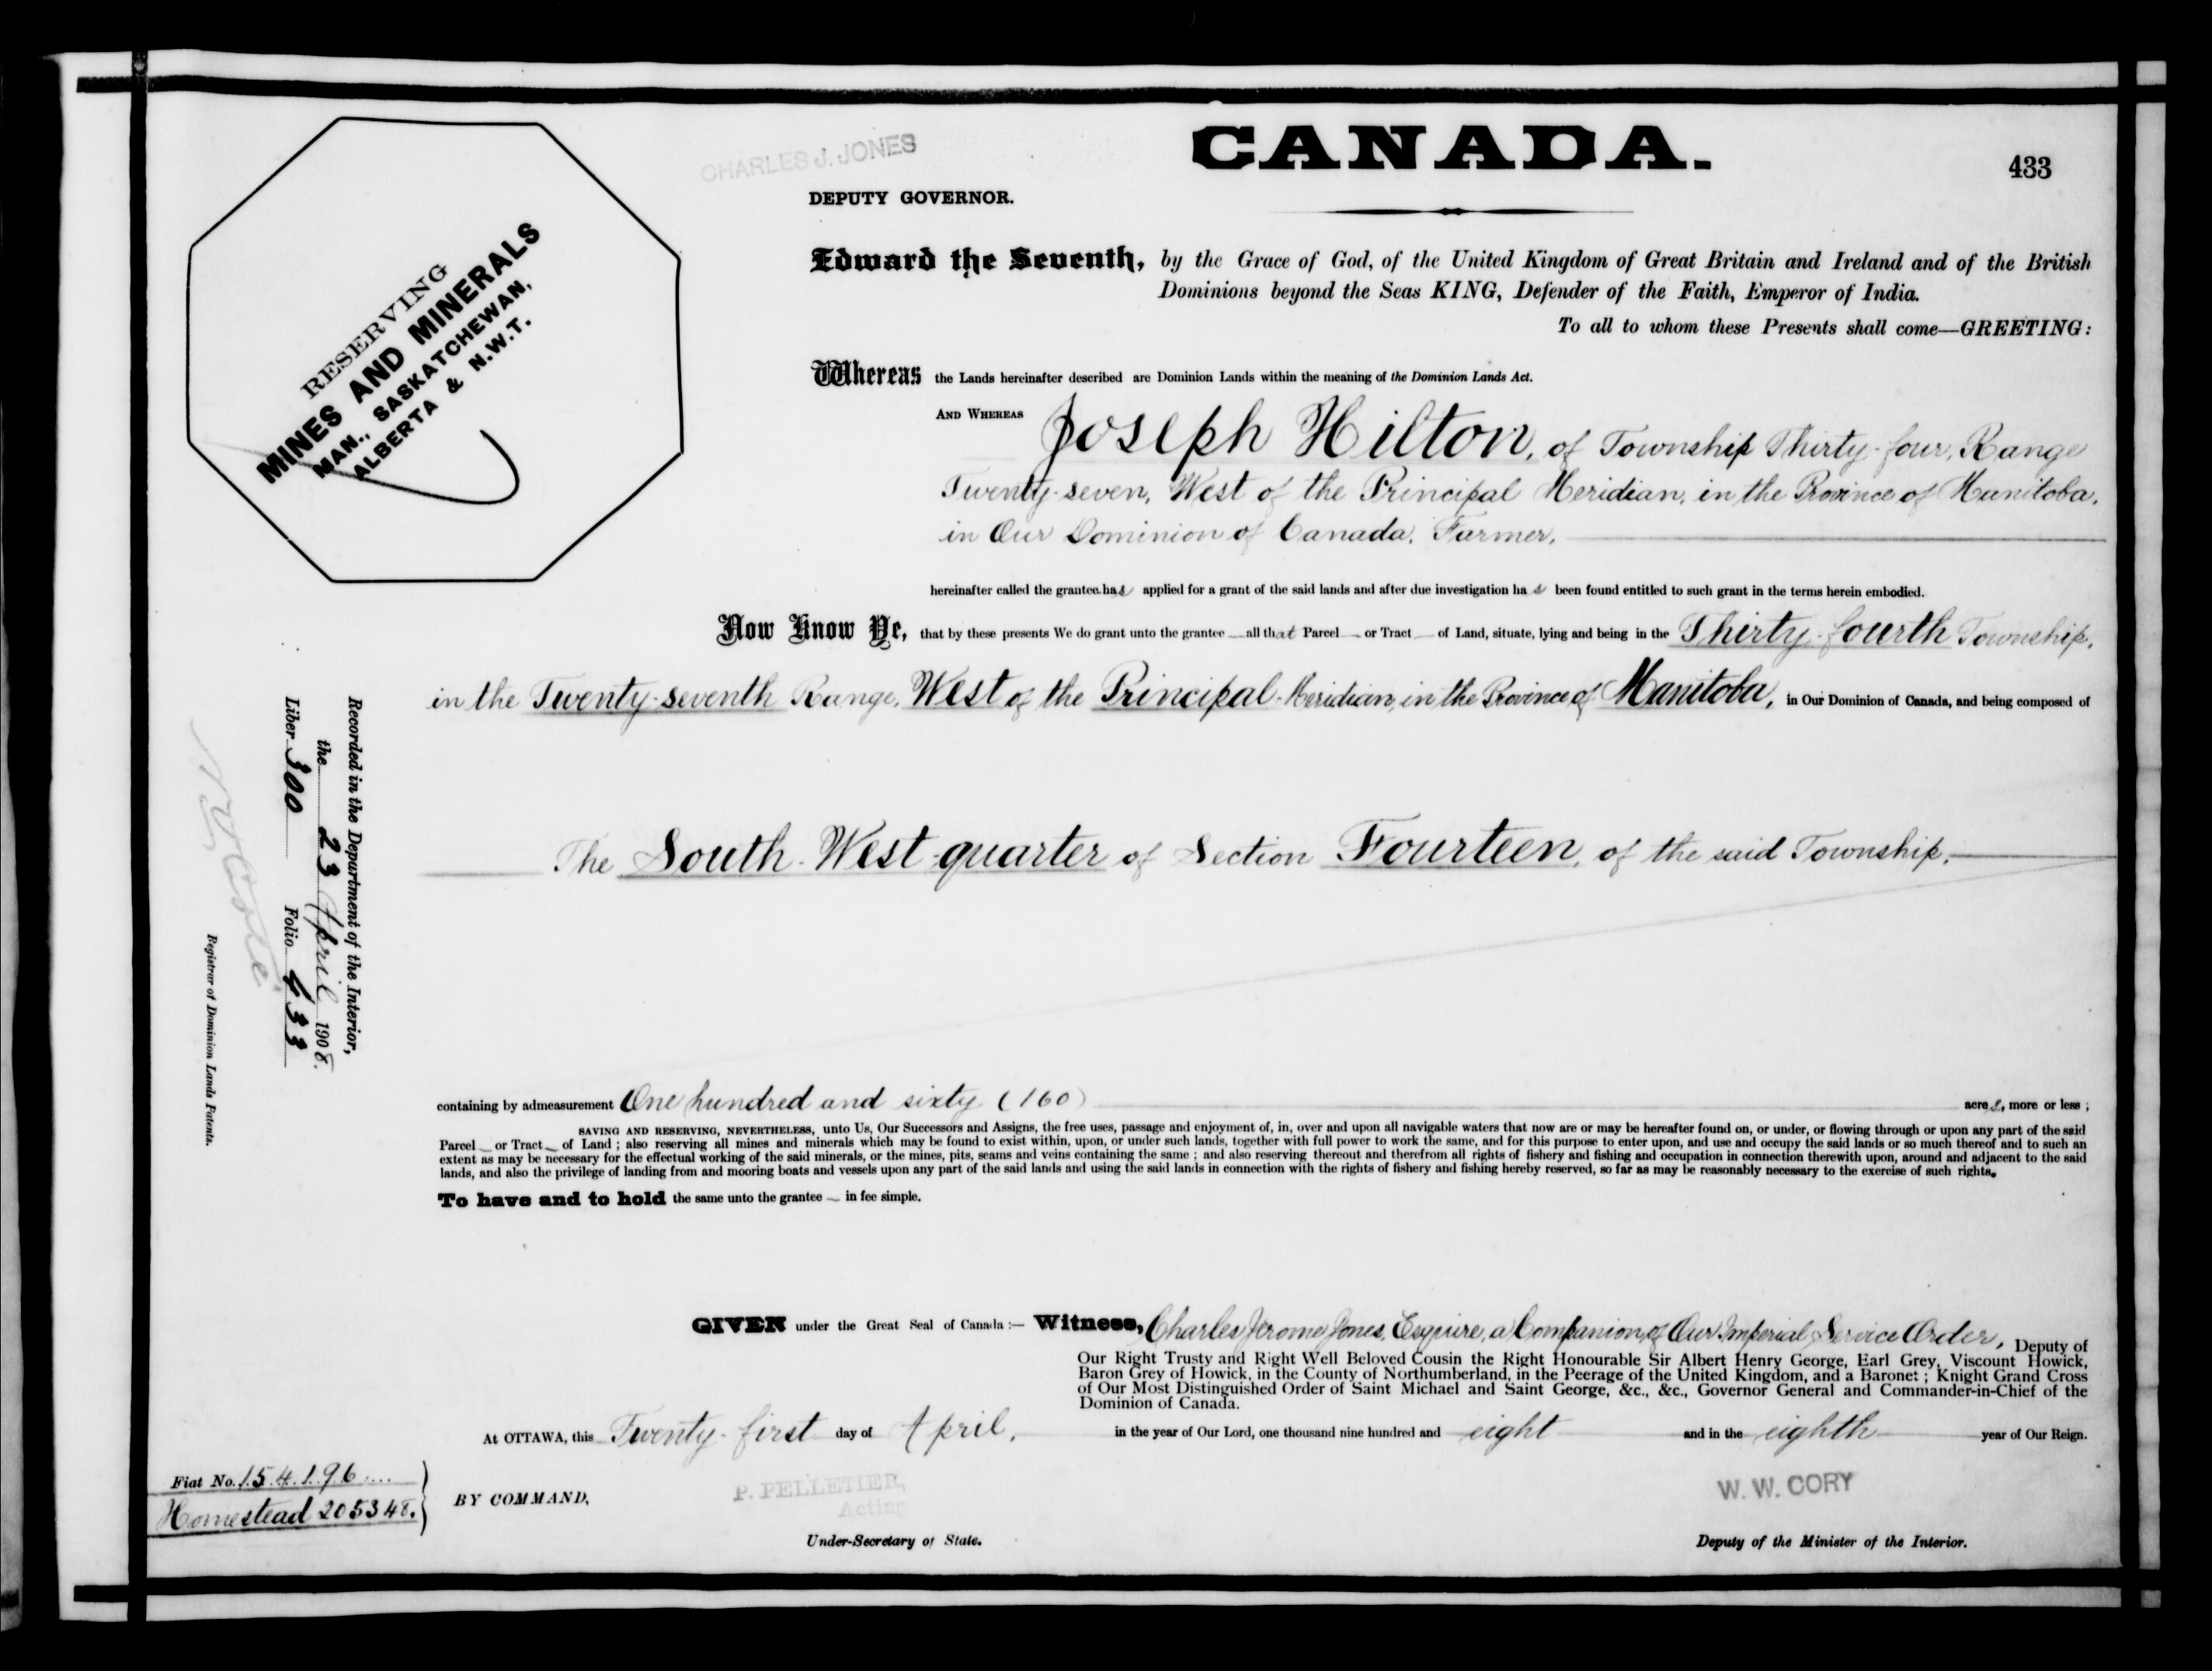 CHARLES J. JONES
CANADA.
433
DEPUTY GOVERNOR.
RESERVING
MINES AND MINERALS
MAN., SASKATCHEWAN,
ALBERTA & N.W.T.
Edward the Seventh, by the Grace of God, of the United Kingdom of Great Britain and Ireland and of the British
Dominions beyond the Seas KING, Defender of the Faith, Emperor of India.
To all to whom these Presents shall come—GREETING:
Whereas the Lands hereinafter described are Dominion Lands within the meaning of the Dominion Lands Act.
AND WHEREAS Joseph Hilton, of Township Thirty-four, Range
Twenty-seven, West of the Principal Meridian, in the Province of Manitoba,
in Our Dominion of Canada, Farmer,
hereinafter called the grantee has applied for a grant of the said lands and after due investigation has been found entitled to such grant in the terms herein embodied.
Now Know Ye, that by these presents We do grant unto the grantee all that Parcel or Tract of Land, situate, lying and being in the Thirty-fourth Township,
in the Twenty-seventh Range, West of the Principal Meridian, in the Province of Manitoba, in Our Dominion of Canada, and being composed of
The South-West quarter of Section Fourteen, of the said Township,
Recorded in the Department of the Interior,
the 23 April 1908.
Liber 300 Folio 433
Registrar of Dominion Lands Patents.
containing by admeasurement One hundred and sixty (160) acres, more or less;
SAVING AND RESERVING, NEVERTHELESS, unto Us, Our Successors and Assigns, the free uses, passage and enjoyment of, in, over and upon all navigable waters that now are or may be hereafter found on, or under, or flowing through or upon any part of the said
Parcel or Tract of Land; also reserving all mines and minerals which may be found to exist within, upon, or under such lands, together with full power to work the same, and for this purpose to enter upon, and use and occupy the said lands or so much thereof and to such an
extent as may be necessary for the effectual working of the said minerals, or the mines, pits, seams and veins containing the same; and also reserving thereout and therefrom all rights of fishery and fishing and occupation in connection therewith upon, around and adjacent to the said
lands, and also the privilege of landing from and mooring boats and vessels upon any part of the said lands and using the said lands in connection with the rights of fishery and fishing hereby reserved, so far as may be reasonably necessary to the exercise of such rights.
To have and to hold the same unto the grantee in fee simple.
GIVEN under the Great Seal of Canada:— Witness, Charles Jerome Jones, Esquire, a Companion of Our Imperial Service Order, Deputy of
Our Right Trusty and Right Well Beloved Cousin the Right Honourable Sir Albert Henry George, Earl Grey, Viscount Howick,
Baron Grey of Howick, in the County of Northumberland, in the Peerage of the United Kingdom, and a Baronet; Knight Grand Cross
of Our Most Distinguished Order of Saint Michael and Saint George, &c., &c., Governor General and Commander-in-Chief of the
Dominion of Canada.
At OTTAWA, this Twenty-first day of April, in the year of Our Lord, one thousand nine hundred and eight and in the eighth year of Our Reign.
Fiat No. 154196
Homestead 205348.
BY COMMAND,
P. PELLETIER,
Acting
Under-Secretary of State.
W. W. CORY
Deputy of the Minister of the Interior.